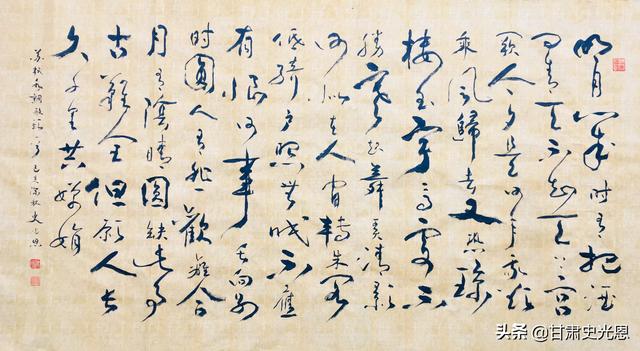 明月幾時有把酒
问青天不知天上宫
阙今夕是何年我欲
乘风歸去又恐瓊
楼玉宇高處不
勝寒起舞弄清影
何似在人间轉朱阁
低绮户照無眠不應
有恨何事长向别
时圆人有悲歡離合
月有陰晴圆缺此事
古難全但願人长
久千里共嬋娟
苏轼水调歌头一首己亥深秋史光恩
头条@甘肃史光恩